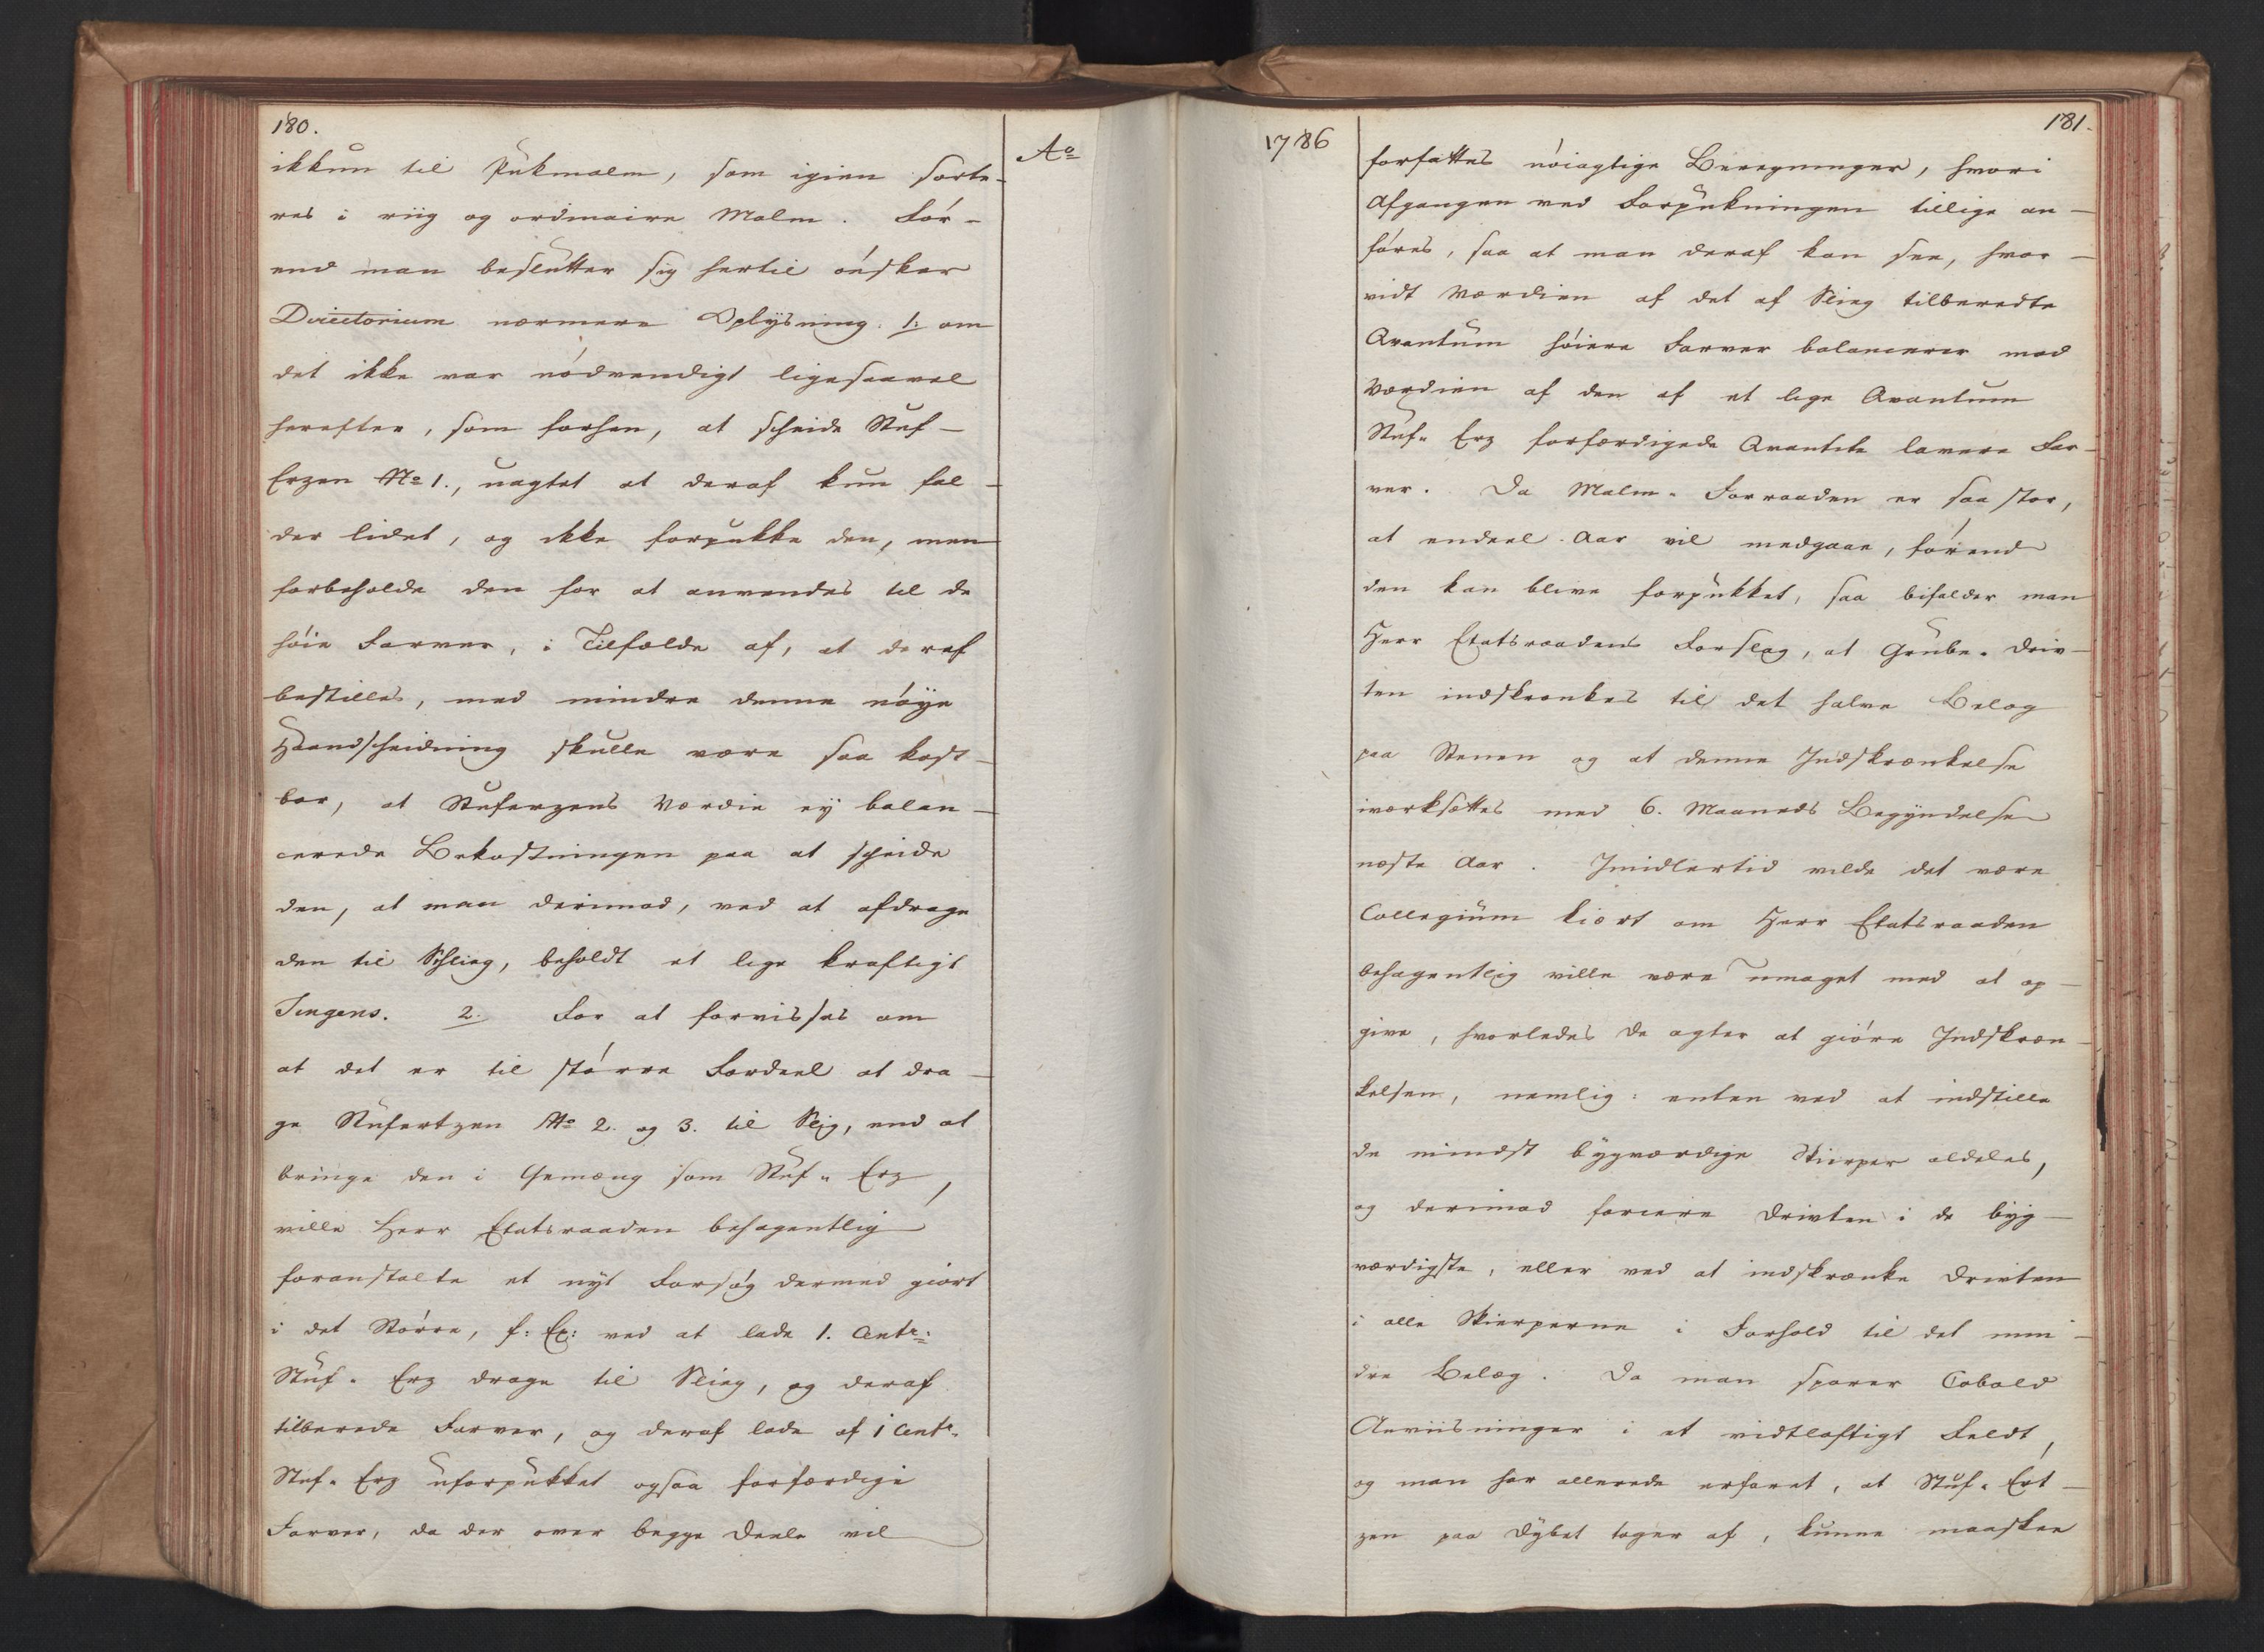 180.
ikkun til Pukmalm, som igien sorte-
res i riig og ordinaire Malm. För-
end man beslutter sig hertil önsker
Directorium nærmere Oplysning. 1. om
det ikke var nödvendigt ligesaavel
herefter, som forhen, at scheide Stuf-
Erzen No 1., uagtet at deraf kun fal-
der lidet, og ikke forpukke den, men
forbeholde den for at anvendes til de
höie Farver, i Tilfælde af, at deraf
bestilles, med mindre denne nöye
Haandscheidning skulle være saa kost-
bar, at Stuferzens Værdie ey balan-
cerede Bekostningen paa at scheide
den, at man derimod, ved at afdrage
den til Schlieg, beholdt et lige kraftigt
Ingens. 2. For at forvisses om
at det er til större Fordeel at dra-
ge Stufertzen No 2. og 3. til Slig, end at
bringe den i Gemæng som Stuf- Erz,
ville Herr Etatsraaden behagentlig
foranstalte et nyt Forsög dermed giort
i det Större, f: Ex: ved at lade 1. Centr:
Stuf- Erz drage til Slieg, og deraf
tilberede Farver, og deraf lade af 1 Centr.
Stuf- Erz uforpukket ogsaa forfærdige
Farver, da der over begge Deele vil
Ao
1786
181.
forfattes nöiagtige Beregninger, hvori
Afgangen ved Forpukningen tillige an-
föres, saa at man deraf kan see, hvor-
vidt Værdien af det af Slieg tilberedte
Qvantum höiere Farver balancerer mod
Værdien af den af et lige Qvantum
Stuf- Erz forfærdigede Qvantite lavere Far-
ver. Da Malm- Forraaden er saa stor,
at endeel Aar vil medgaae, förend
den kan blive forpukket, saa bifalder man
Herr Etatsraadens Forslag, at Grube- Driv-
ten indskrænkes til det halve Belæg
paa Stenen og at denne Indskrænkelse
iværksættes med 6. Maaneds Begyndelse
næste Aar. Imidlertid vilde det være
Collegium kiært om Herr Etatsraaden
behagentlig ville være umaget med at op-
give, hvorledes De agter at giöre Indskræn-
kelsen, nemlig: enten ved at indstille
de mindst bygværdige Skierper aldeles,
og derimod forcere Drivten i de byg-
værdigste, eller ved at indskrænke Drivten
i alle Skierperne i Forhold til det min-
dre Belæg. Da man sporer Cobold
Anviisninger i et vidtløftigt Feldt,
og man har allerede erfaret, at Stuf- Ert-
zen paa Dybet tager af, kunne maaskee